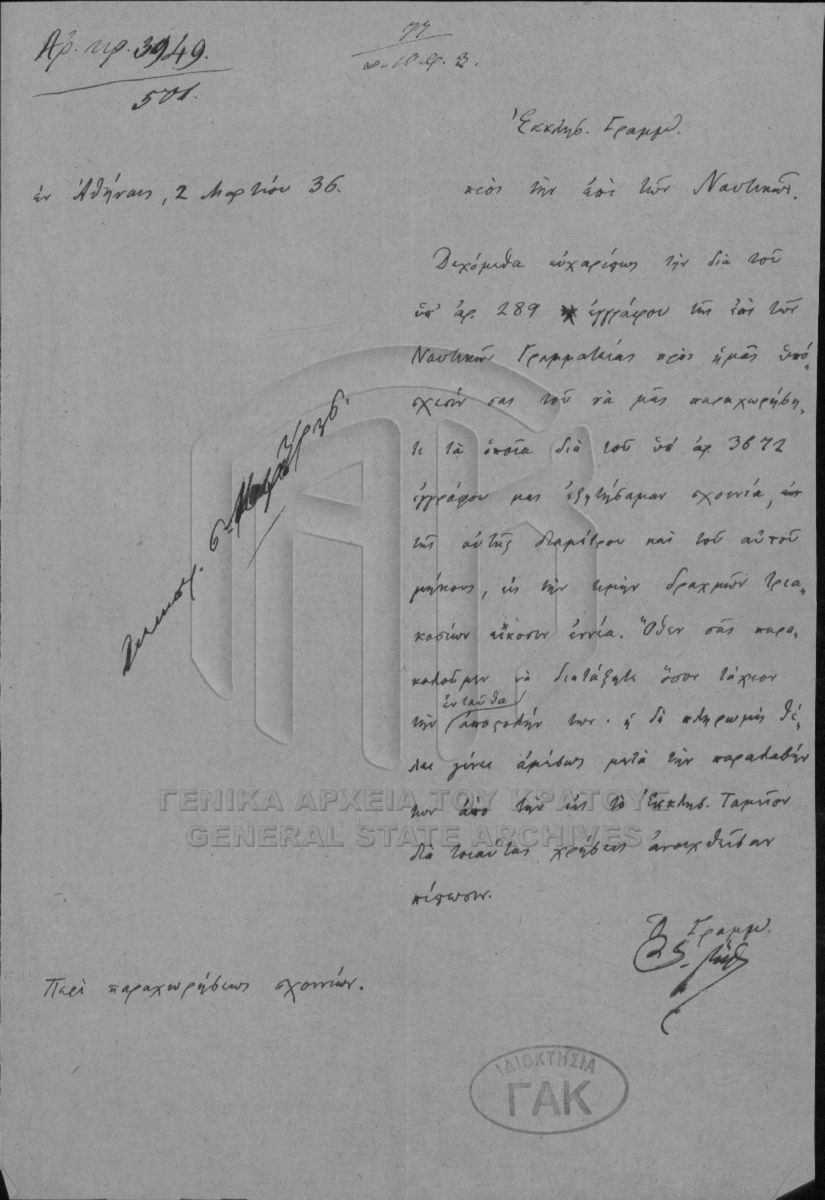 Αρ. πρ. 3949.
501.
77
Ἐκκλησ. Γραμμ.
ἐν Ἀθήναις, 2 Μαρτίου 36.
πρὸς τὴν ἐπὶ τῶν Ναυτικῶν.
Δεχόμεθα εὐχαρίστως τὴν διὰ τοῦ
ὑπ' ἀρ. 289 ἐγγράφου τῆς ἐπὶ τῶν
Ναυτικῶν Γραμματείας πρὸς ἡμᾶς ὑπό-
σχεσίν σας τοῦ νὰ μᾶς παραχωρήση-
τε τὰ ὁποῖα διὰ τοῦ ὑπ' ἀρ. 3672
ἐγγράφου μας ἐζητήσαμαν σχοινία,
τῆς αὐτῆς διαμέτρου καὶ τοῦ αὐτοῦ
μήκους, εἰς τὴν τιμὴν δραχμῶν τρια-
κοσίων εἴκοσιν ἐννέα. Ὅθεν σᾶς παρα-
καλοῦμεν νὰ διατάξητε ὅσον τάχιον
ἐνταῦθα
τὴν ἀποστολήν των· ἡ δὲ πληρωμὴ θέ-
λει γίνει ἀμέσως μετὰ τὴν παραλαβήν
των ἀπὸ τὴν εἰς τὸ Ἐκκλησ. Ταμεῖον
διὰ τοιαύτας χρήσεις ἀνοιχθεῖσαν
πίστωσιν.
Ὁ Γραμμ.
Περὶ παραχωρήσεως σχοινίων.
ΓΕΝΙΚΑ ΑΡΧΕΙΑ ΤΟΥ ΚΡΑΤΟΥΣ
GENERAL STATE ARCHIVES
ΙΔΙΟΚΤΗΣΙΑ
ΓΑΚ